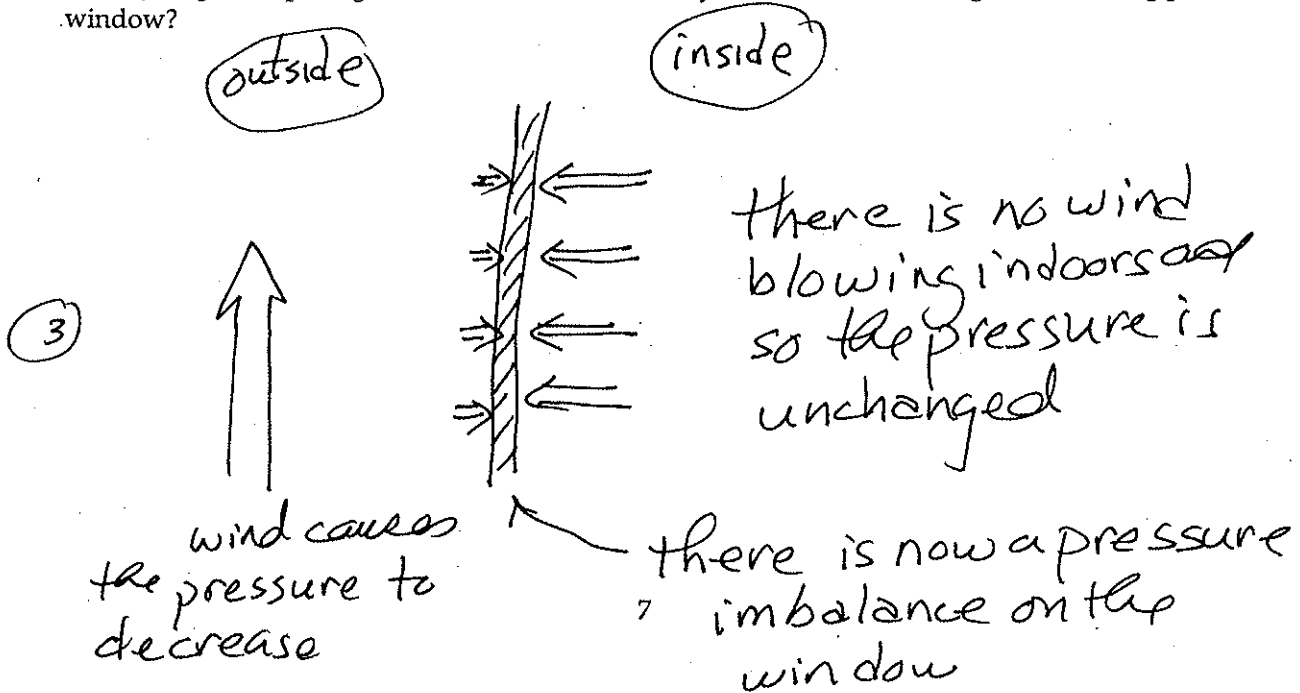 window?
outside
inside
there is no wind
blowing indoors
so the pressure is
unchanged
3
wind causes
the pressure to
decrease
there is now a pressure
imbalance on the
window
7